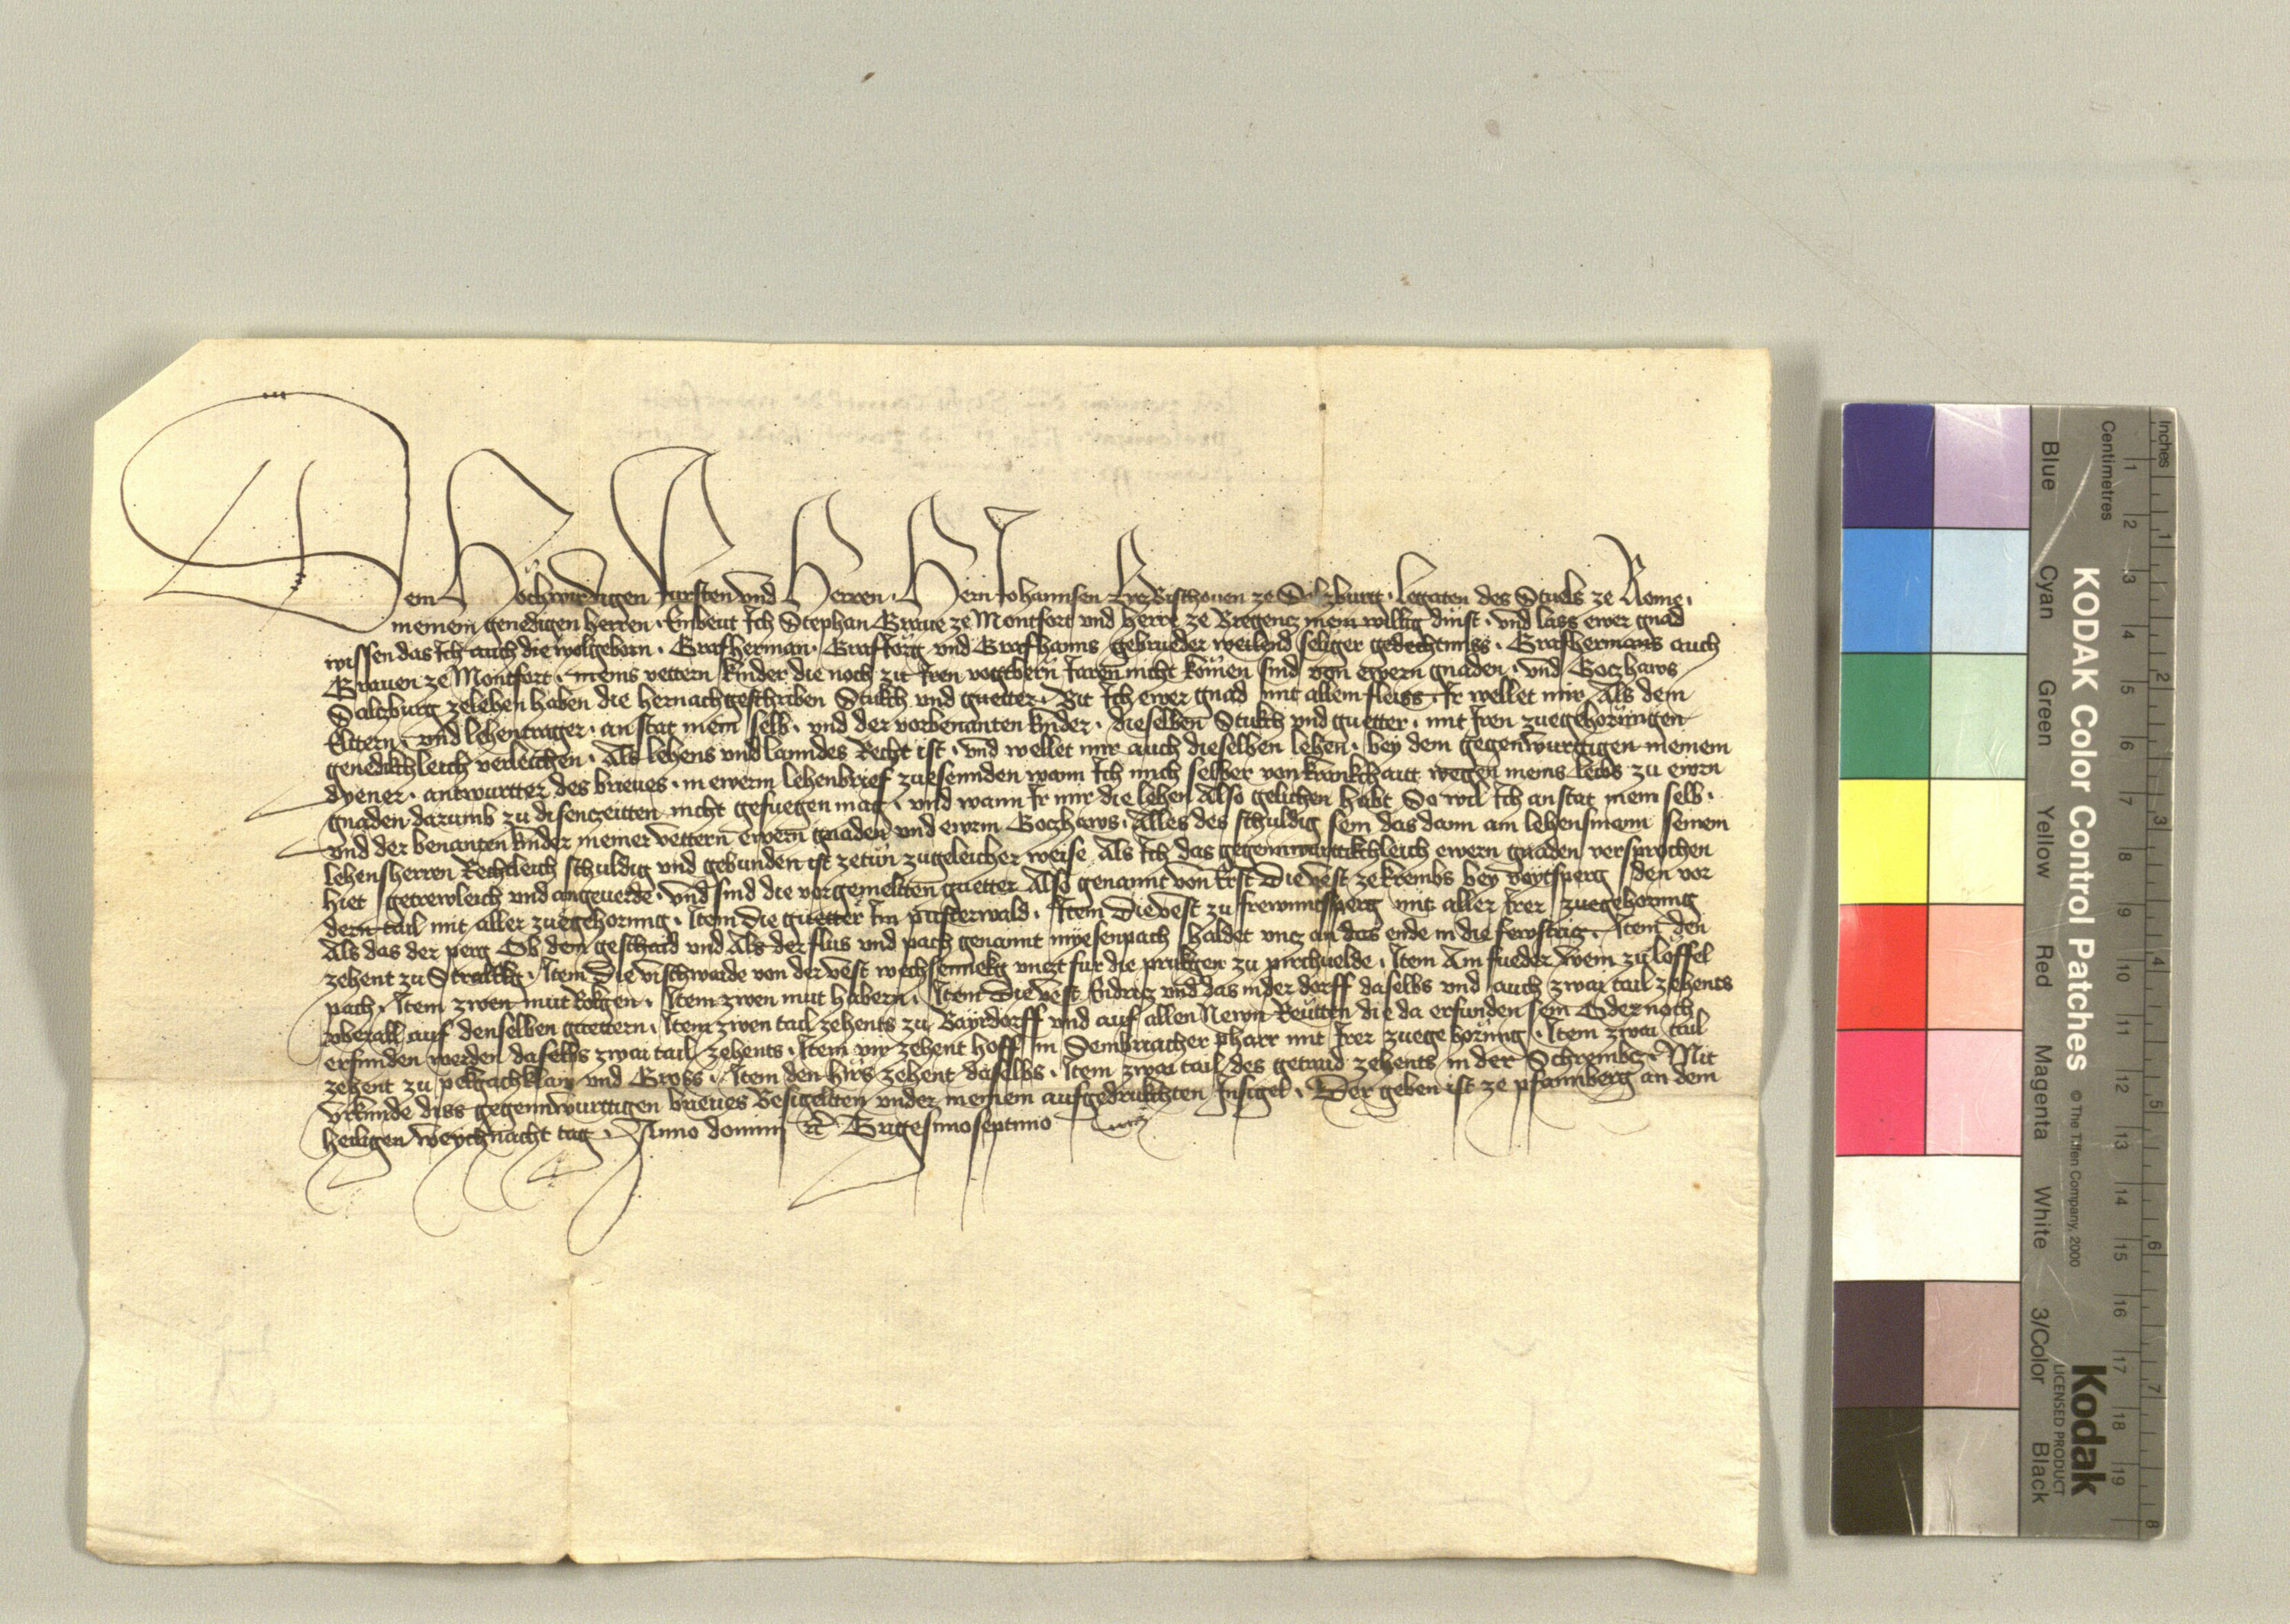 Dem Hochwirdigen fursten vnd Herren. Hern Johannsen Ercz Bischouen ze Salzburg. legaten des Stuels ze Rome.
meinem genedigen herren. Embeut Ich Stephan Graue ze Montfort vnd herre ze Bregencz mein willig dinst. vnd lass ewer gnad
wissen das Ich auch die wolgeborn. Graf Herman. Graf Jorg vnd Graf hanns gebrueder weilend seliger gedechtnuss. Graf hermans auch
Grauen ze Montfort. meins vettern kinder die noch zu Iren vogtbern Jaren nicht komen sind von ewern gnaden. vnd Goczhaws
Salczburg zelehen haben die hernachgeschriben Stukch vnd guetter. Bit Ich ewer gnad mit allem fleiss. Ir wellet mir Als dem
Eltern. vnd lehentrager. anstat mein selb. vnd der vorbenanten kinder. dieselben Stukch vnd guetter. mit Iren zuegehorungen
genedikchleich verleichen. Als lehens vnd lanndes Recht ist. vnd wellet mir auch dieselben lehen. bey dem gegenwurttigen meinem
dyener. antwurtter des brieues. in ewerm lehenbrief zuesennden wann Ich mich selber von krankchait wegen meins leibs zu ewrn
gnaden darumb zu disen zeitten nicht gefuegen mag. vnd wann Ir mir die lehen Also gelichen habt So wil Ich anstat mein selb.
vnd der benanten kinder meiner vettern ewern gnaden vnd ewrm Goczhaws. Alles des schuldig sein das dann ain lehensmann seinem
lehensherren Rechtleich schuldig vnd gebunden ist zetun zugeleicher weise Als Ich das gegennwurttikchleich ewern gnaden versprochen
hiet getrewleich vnd angeuerde. vnd sind die vorgemelten guetter Also genannt von Erst Die vest ze krembs bey voytsperg den vor
dern tail mit aller zuegehorung. Item die guetter Im pusterwald. Item Die vest zu frewntsperg mit aller Irer zuegehorung
Als das der perg Ob dem geschaid vnd Als der flus vnd pach genannt myesenpach haldet vncz an das ende in die fewstricz. Item den
zehent zu Strallkg. Item Die vischwaide von der vest wechsennekg vnczt fur die prukgen zu pirchuelde. Item Am fueder wein zu loffel
pach. Item zwen mut Rokgen. Item zwen mut habern. Item Die vest Eidracz vnd das nider dorff daselbs vnd auch zwai tail zehents
vberall auf denselben guettern. Item zwen tail zehents zu Bayrdorff vnd auf allen Newn Reutten die da erfunden sein Oder noch
erfunden werden daselbs zwai tail zehents. Item vir zehent hoff in Sembriacher pharr mit Irer zuege horung. Item zwai tail
zehent zu pekgachklain vnd Gross. Item den hirs zehent daselbs. Item zwai tail des getraid zehents in der Schrembcz. Mit
vrkunde diss gegennwurttigen brieues Besigelten vnder meinem aufgedrukchten Insigel. Der geben ist ze pfannberg an dem
heiligen weychnacht tag. Anno domini etc Tricesimoseptimo
KODAK Color Control Patches © The Tiffen Company, 2000
Kodak
LICENSED PRODUCT
Blue Cyan Green Yellow Red Magenta White 3/Color Black
Inches 1 2 3 4 5 6 7 8
Centimetres 1 2 3 4 5 6 7 8 9 10 11 12 13 14 15 16 17 18 19